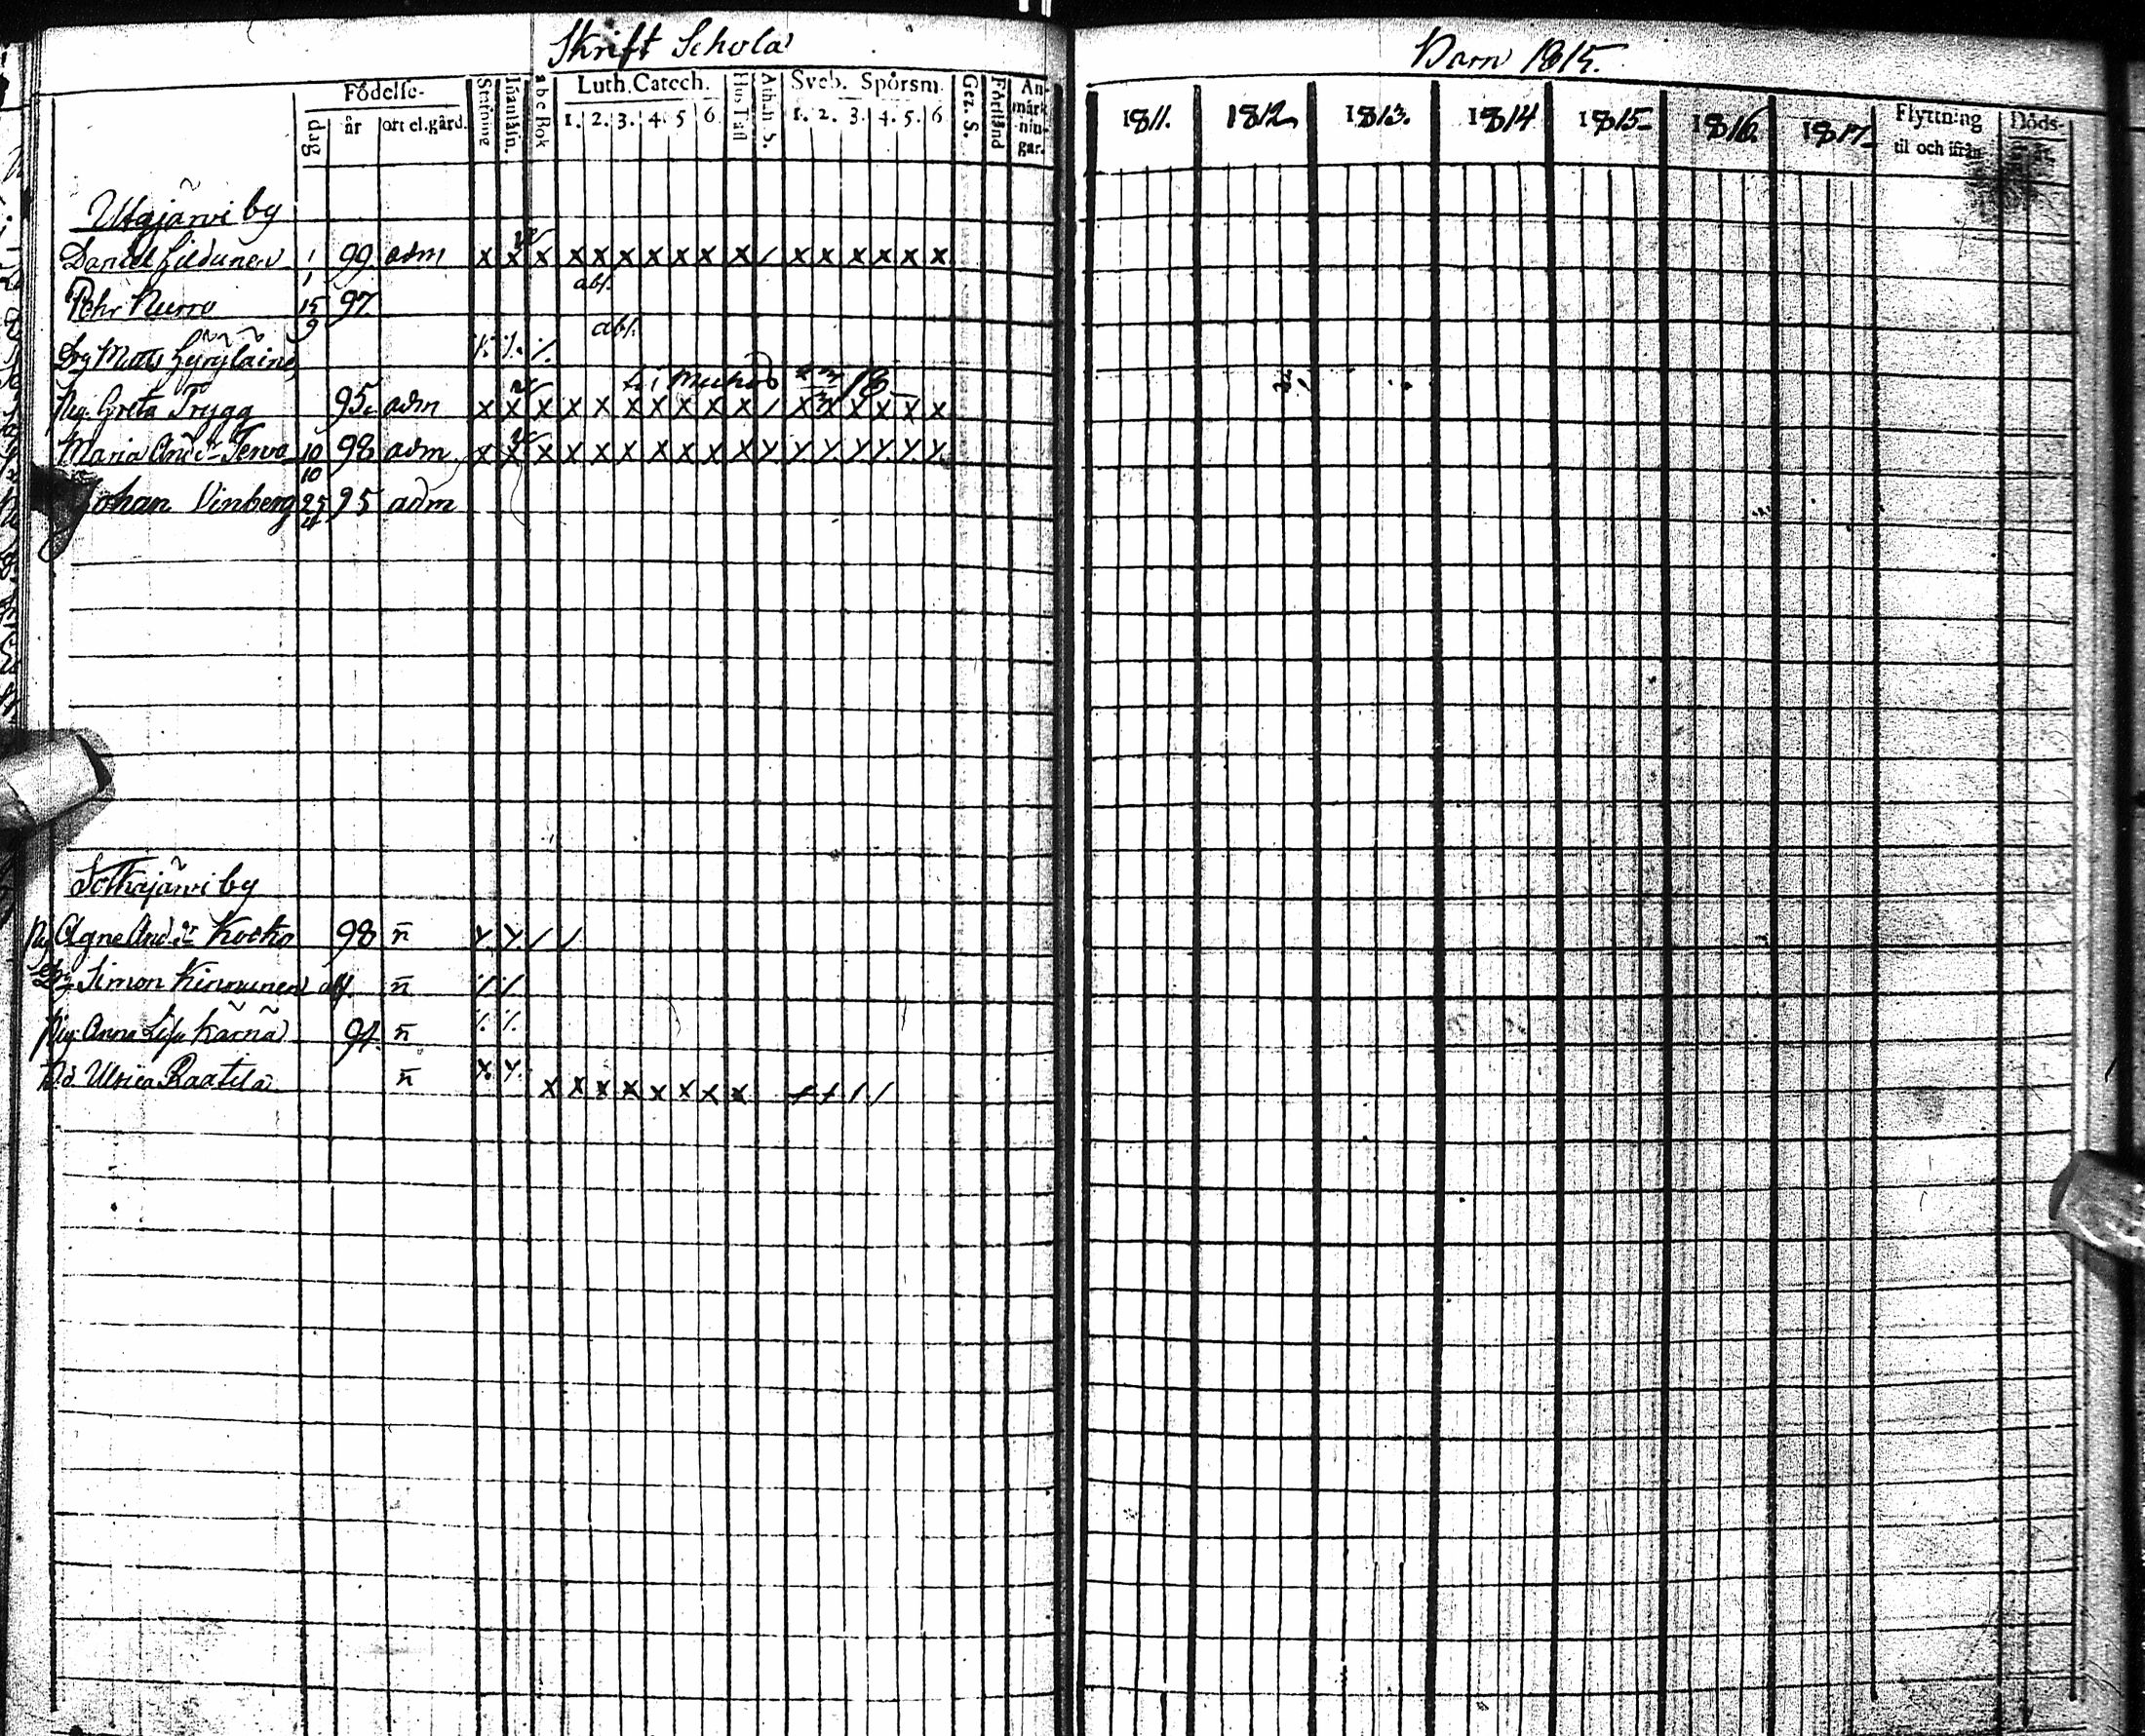 Skrift Schola Barn 1815.
Födelse- Stafning Inanläsn. abc Bok Luth. Catech. Hus Tafl Athan. S. Sveb. Spörsm. Gez. S. Förstånd An-märk-nin-gar. 1811. 1812 1813. 1814 1815 1816. 1817 Flyttning til och ifrån Döds-
dag år ort el. gård. 1. 2. 3. 4. 5 6 1. 2. 3. 4. 5. 6 år.
Utajärvi by
Daniel 1 99 adm x x x x x x x x x x / x x x x x x
1 abs.
Pehr Nurro 15 97
9 abs.
Drg Matts
Pig. Greta Trygg 95. adm x x x x x x x x x x / x x x x x x
Maria And. dr Terva 10 98 adm x x x x x x x x x x y y y y y y y
10
Johan Vinberg 25 95 adm
4
Sotkajärvi by
Pig Agne And. dr Kocko 98 n̄ y y / /
Simon Kinnunen n̄ ⁒ ⁒
Pig. Anna Lisa Kärnä 94 n̄ ⁒ ⁒
Ulrica Raatila n̄ x. y.
x x x x x x x x + + / /